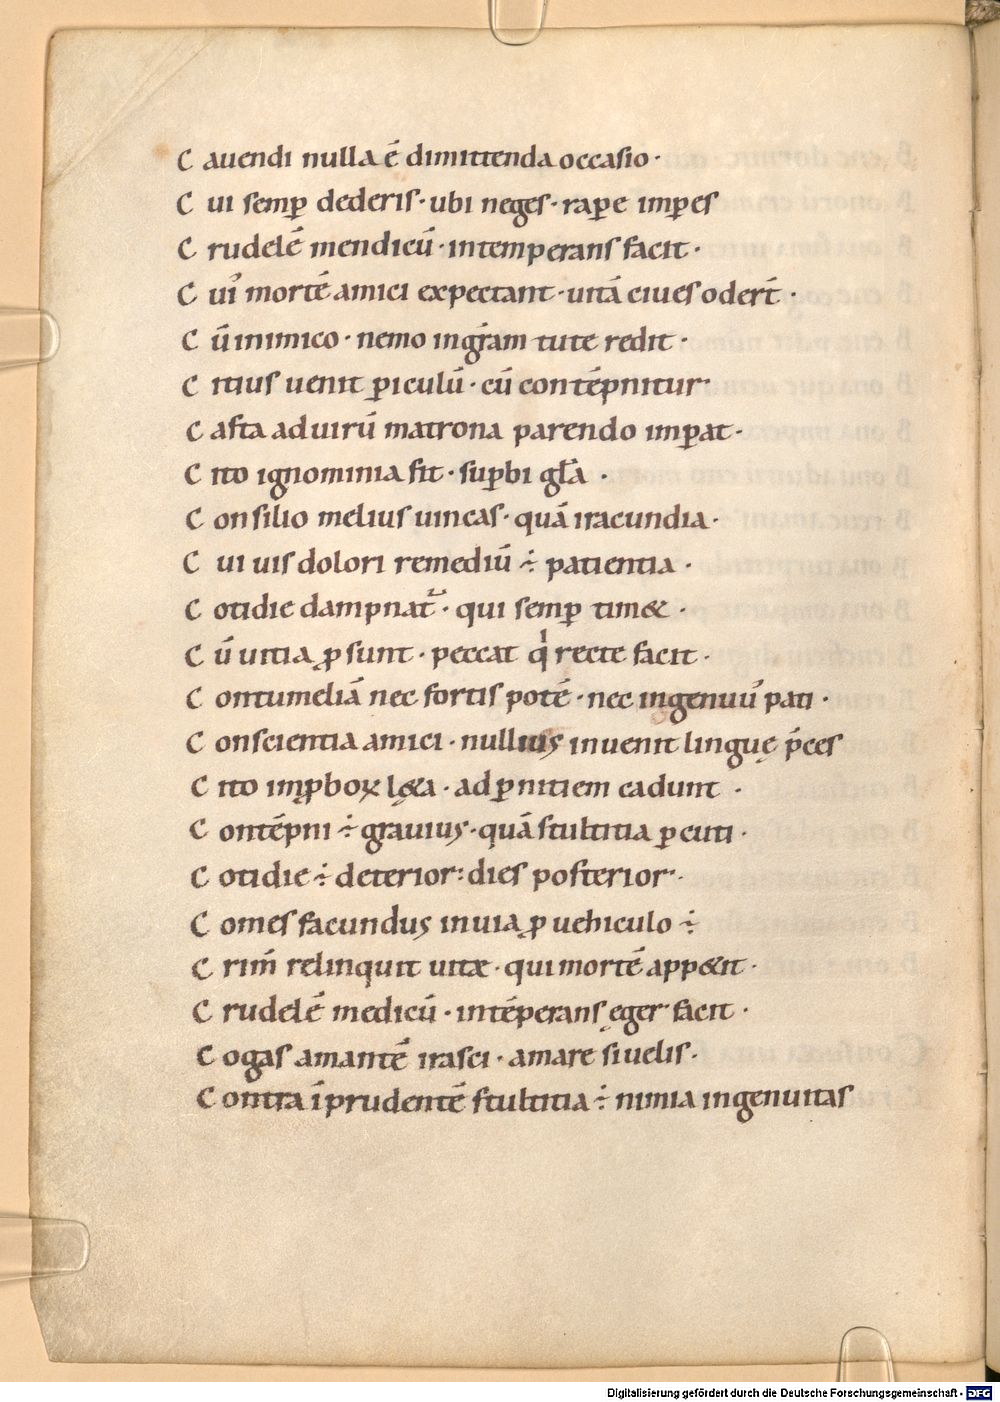 C auendi nulla ē dimittenda occasio·
C ui semꝑ dederis· ubi neges· raꝑe imꝑes
C rudelē mendicū· intemperans facit·
C uı᷒ mortē amici expectant· uitā ciues odert̄·
C ū inimico· nemo in gr̄am tute redit·
C itius uenit ꝑiculū· cū contēpnitur·
C asta ad uirū matrona parendo imꝑat·
C ito ignominia fit· suꝑbi gl̄a·
C onsilio melius uincas· quā iracundia·
C ui uis dolori remediū ÷ patientia·
C otidie dampnat᷑· qui semꝑ tim&·
C ū uitia ꝓsunt· peccat qͥ recte facit·
C ontumeliā nec fortis potē· nec ingenuu᷒ pati·
C onscientia amici· nullius inuenit linguę p̄ces
C ito imꝓboꝝ lę&a· ad ꝑnitiem cadunt·
C ontēpni ÷ grauius· quā stultitia ꝑcuti·
C otidie ÷ deterior: dies posterior·
C omes facundus in uia ꝓ uehiculo ÷
C rim̄ relinquit uitæ· qui mortē app&it·
C rudelē medicū· intēperans ęger facit·
C ogas amantē irasci· amare si uelis·
C ontra īprudentē stultitia ÷ nimia ingenuitas
Digitalisierung gefördert durch die Deutsche Forschungsgemeinschaft - DFG